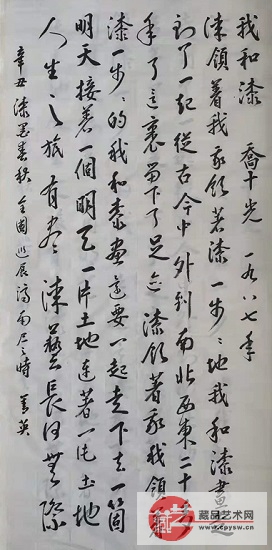 我和漆 喬十光 一九八七年
漆領着我我領着漆一步々地我和漆畫走
到了一起從古今中外到南北西東二十
年了這裏留下了足迹漆領着我我領着
漆一步々的我和漆畫還要一起走下去一個
明天接着一個明天一片土地連着一片土地
人生之旅有盡 漆藝長河無際
辛丑 漆墨春秋 全國巡展濟南 之時 英
藏品艺术网
www.cpysw.cn